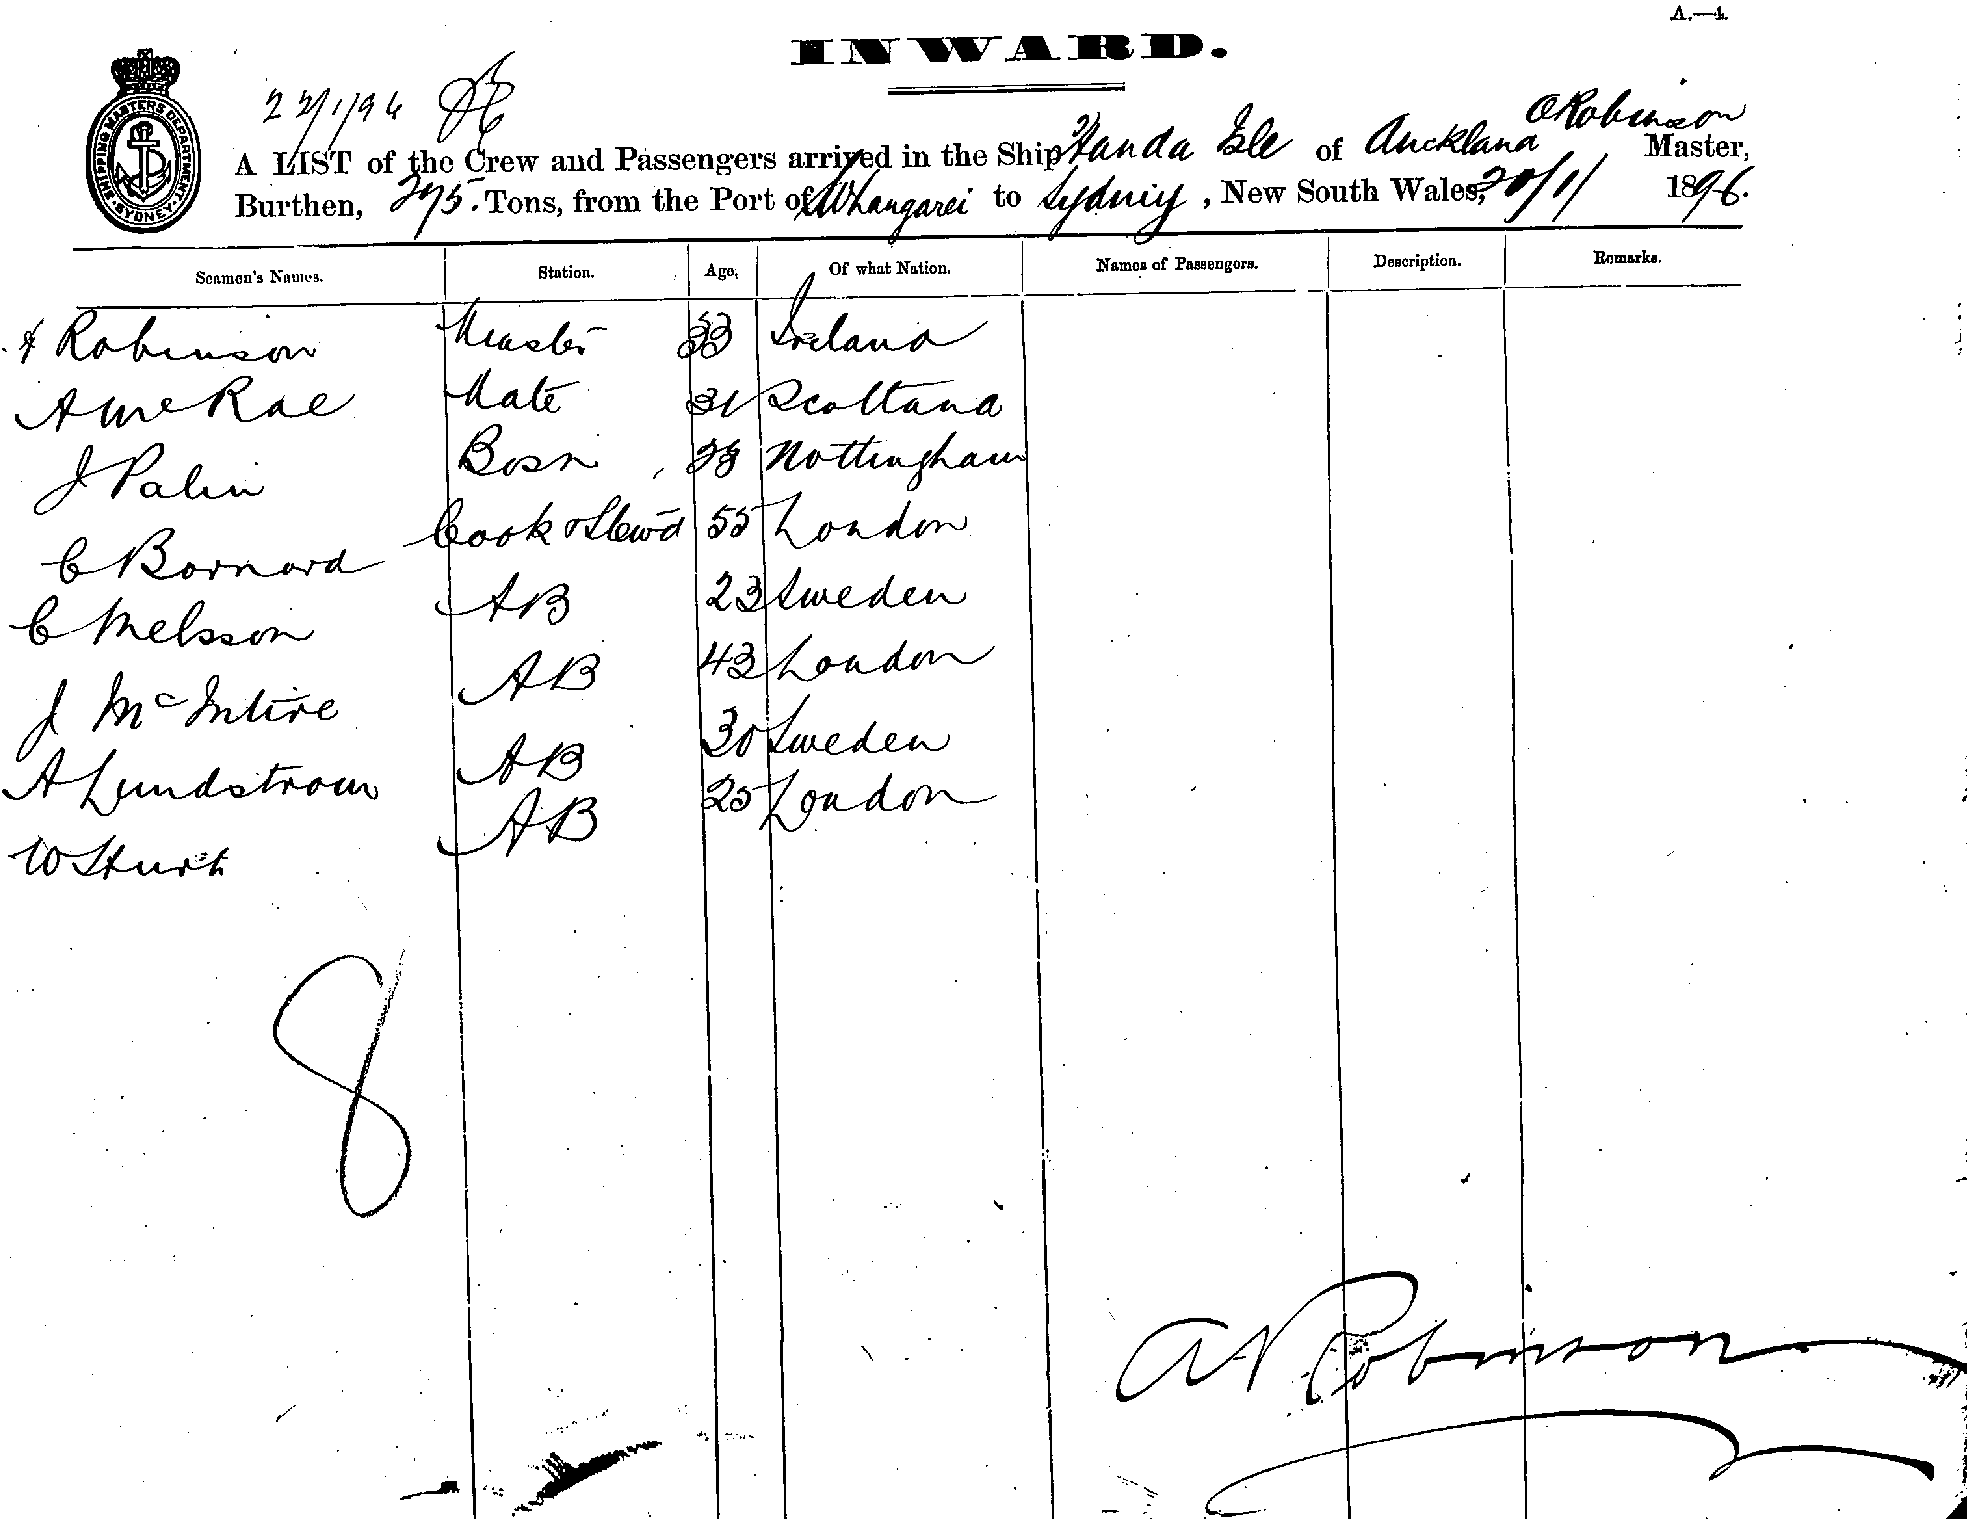 A.—4.
INWARD.
SHIPPING MASTERS DEPARTMENT SYDNEY
22/1/96
O Robinson
A LIST of the Crew and Passengers arrived in the Ship Handa Isle of Auckland Master,
Burthen, 295. Tons, from the Port of Whangarei to Sydney, New South Wales, 20/1/ 1896.
Seamen's Names. Station. Age. Of what Nation. Names of Passengers. Description. Remarks.
Robinson Master 33 Ireland
A McRae Mate 31 Scotland
J Palin Bosn Nottingham
C Barnard Cook & Stewd 55 London
C Melsson AB 23 Sweden
J McIntire AB 43 London
A Lundstrom AB 30 Sweden
W Sturt AB 25 London
8
A Robinson